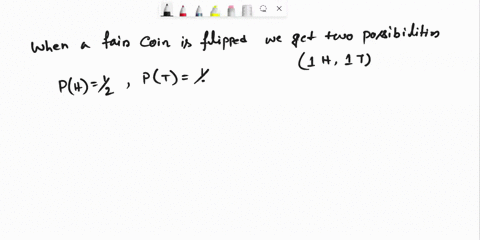 When a fair coin is flipped we get two possibilities
(1 H, 1 T)
P(H) = 1/2 , P(T) = 1/